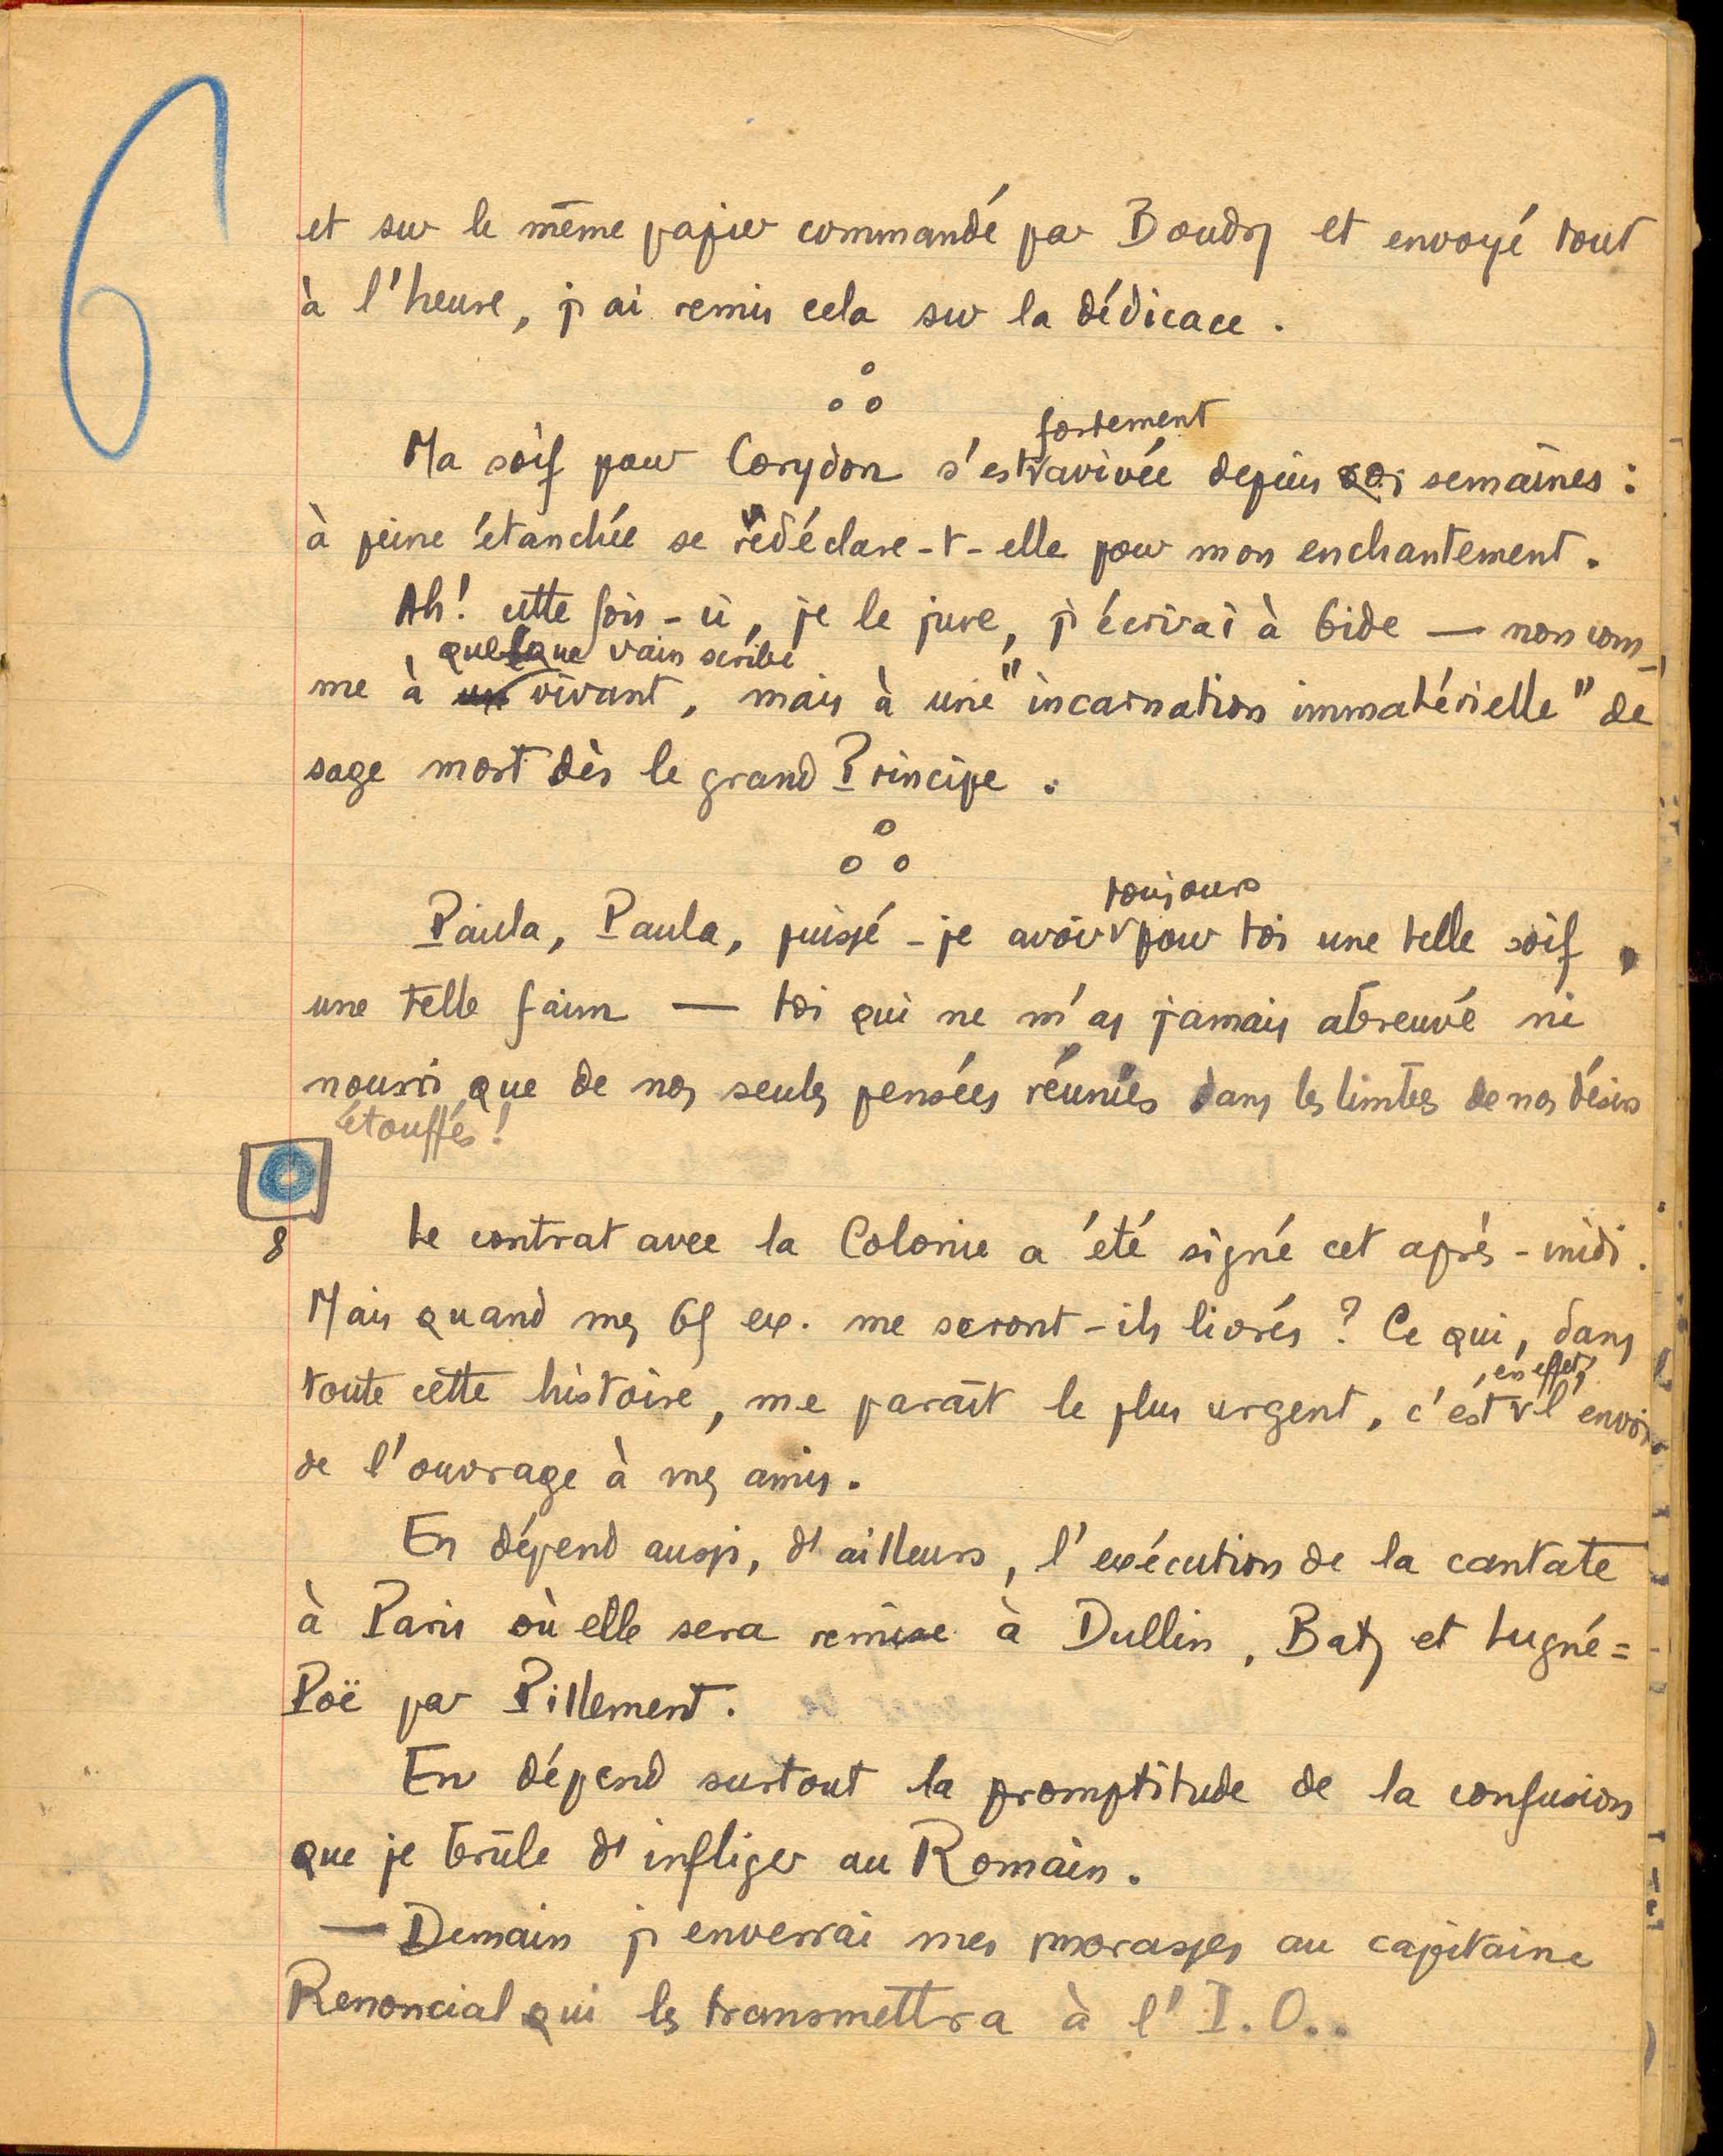 et sur le même papier commandé par Boudry et envoyé tout
à l'heure, j'ai remis cela sur la dédicace.
Ma soif pour Corydon s'est fortement avivée depuis semaines :
à peine étanchée se redéclare-t-elle pour mon enchantement.
Ah! cette fois-ci, je le jure, j'écrirai à Gide — non com-
me à quelque vain scribe vivant, mais à une "incarnation immatérielle" de
sage mort dès le grand Principe.
Paula, Paula, puissé-je avoir toujours pour toi une telle soif,
une telle faim — toi qui ne m'as jamais abreuvé ni
nourri que de nos seules pensées réunies dans les limbes de nos désirs
étouffés!
8
Le contrat avec la Colonie a été signé cet après-midi.
Mais quand mes ex. me seront-ils livrés ? Ce qui, dans
toute cette histoire, me paraît le plus urgent, c'est, en effet, l'envoi
de l'ouvrage à mes amis.
En dépend aussi, d'ailleurs, l'exécution de la cantate
à Paris où elle sera remise à Dullin, Baty et Lugné=
Poë par Pillement.
En dépend surtout la promptitude de la confusion
que je brûle d'infliger au Romain.
— Demain j'enverrai mes morasses au capitaine
Renoncial qui les transmettra à l'I.O..